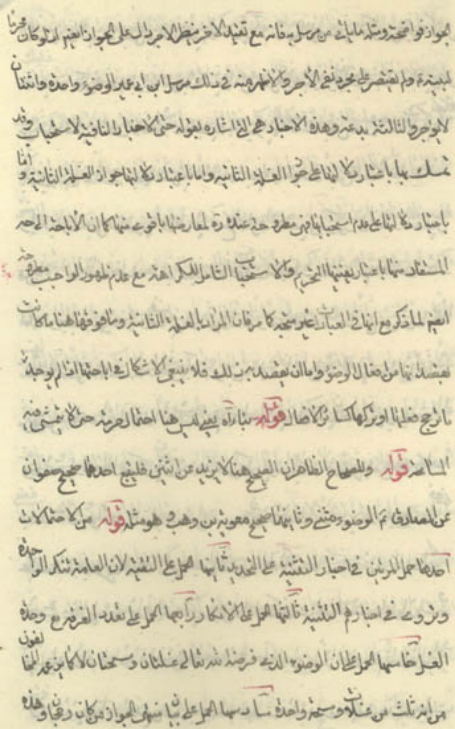 الجواز فواضحة ومثله ما يأتي من مرسل فانه مع تقييد الاخر ينظر الاجر دال على الجواز ايضم اذ لو كان محرما
لبينه ولم يقتصر على مجرد نفي الأجر والاظهر منه في ذلك مرسل ابن ابي عمير الوضوء واحدة واثنتان
لا يوجر والثالثة بدعة وهذه الاخبار هي التي اشار اليه بقوله حتى الاخبار النافية لاستحباب وقد
تمسك بها باعتبار دلالتها على جواز الغسلة الثانية واما باعتبار دلالتها جواز الغسلة الثانية واما
باعتبار دلالتها على عدم استحبابها فهي مطروحة عنده لمعارضتها باقوى منها كما ان الاباحة
المستفاد منها باعتبار نفيها التحريم والاستحباب الشامل للكراهة مع عدم ظهور الواجب مطروحة
ايضم لما ذكر مع انها في العبادات غير متجه كما مر فان المراد بالغسلة الثانية وما فوقها هنا ما كانت
بقصد انها من افعال الوضوء واما ان بقصد ذلك فلا ينبغي الاشكال في اباحتها اذا لم يوجد
ما يرجح فعلها او تركها كسائر الافعال قوله بناء يعني ليس هنا احتمال حرمة حتى لا يتمشى فيه
المسامحة قوله وللصحاح الظاهر ان الصحيح هنا لا يزيد عن اثنين فليتبع احدهما صحيح صفوان
عن الصادق ع الوضوء مثنى مثنى وثانيهما صحيح معوية بن وهب وهو مثله قوله من الاحتمالات
احدها حمل المرتين في اخبار التثنية على التجديد ثانيها الحمل على التقية لان العامة تنكر الواحدة
وتروى في اخبارهم التثنية ثالثها الحمل على الانكار رابعها الحمل على تعدد الغرفة مع وحدة
الغسل خامسها الحمل على ان الوضوء الذي فرضه الله تعالى غسلتان ومسحتان لا كما يزعمه المخالفون
من انه ثلث من غسلات ومسحة واحدة سادسها الحمل على بيان منتهى الجواز من كان وهذه